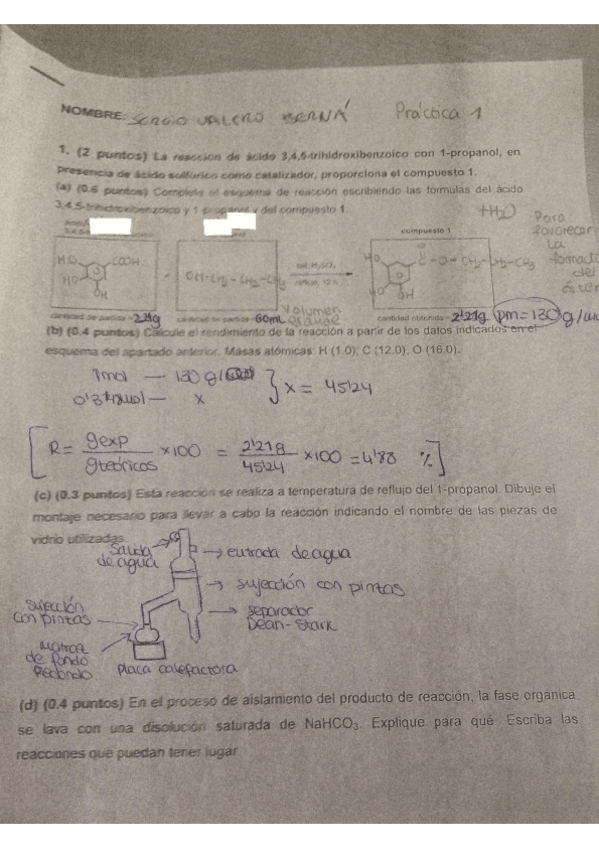 NOMBRE: SERGIO VALERO BERNÁ Práctica 1
1. (2 puntos) La reacción de ácido 3,4,5-trihidroxibenzoico con 1-propanol, en
presencia de ácido sulfúrico como catalizador, proporciona el compuesto 1.
(a) (0.6 puntos) Complete el esquema de reacción escribiendo las fórmulas del ácido
3,4,5-trihidroxibenzoico y 1-propanol y del compuesto 1.
+H2O
Para
favorecer
la
del
éster
compuesto 1
HO COOH
HO
OH
+
OH-CH2-CH2-CH3
HO C-O-CH2-CH2-CH3
HO
OH
cantidad de partida = 60mL
Volumen
grande
cantidad obtenida = 2'21g
(b) (0.4 puntos) Calcule el rendimiento de la reacción a partir de los datos indicados en el
esquema del apartado anterior. Masas atómicas: H (1.0); C (12.0), O (16.0).
1mol — 130 g/
x
} x = 45'24
[R = gexp / gteóricos ×100 = 2'21g / 45'24 ×100 = 4'88 %]
(c) (0.3 puntos) Esta reacción se realiza a temperatura de reflujo del 1-propanol. Dibuje el
montaje necesario para llevar a cabo la reacción indicando el nombre de las piezas de
vidrio utilizadas.
Salida
de agua
entrada de agua
sujección con pinzas
sujección
con pinzas
separador
Dean-Stark
matraz
de fondo
redondo
placa calefactora
(d) (0.4 puntos) En el proceso de aislamiento del producto de reacción, la fase orgánica
se lava con una disolución saturada de NaHCO3. Explique para qué. Escriba las
reacciones que puedan tener lugar.